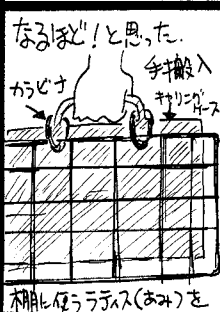 なるほど!と思った.
手搬入
カラビナ
キャリング
ケース
棚に使うラティス(あみ)を